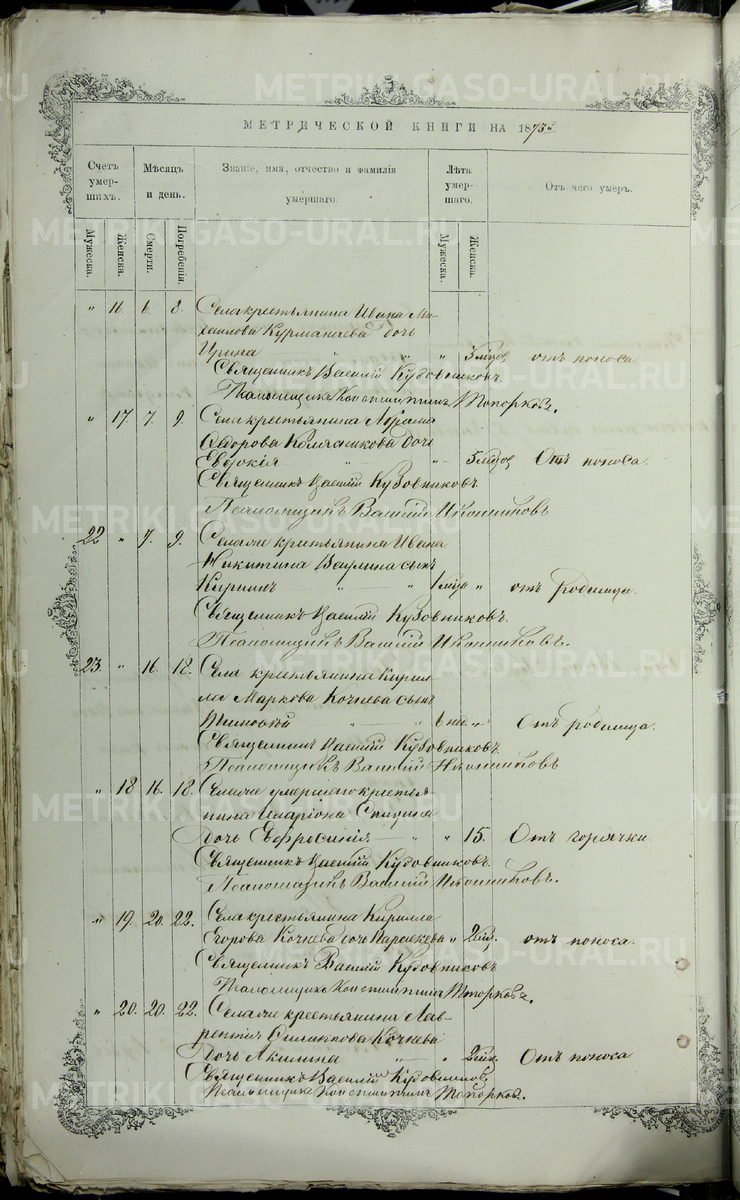 METRIKI.GASO-URAL.RU
МЕТРИЧЕСКОЙ КНИГИ НА 1873
Счетъ умершихъ.
Мѣсяцъ и день.
Званіе, имя, отчество и фамилія умершаго.
Лѣта умершаго.
Отъ чего умеръ.
Мужеска.
Женска.
Смерти.
Погребенія.
Мужеска.
Женска.
" 16. 6. 8. Села крестьянина Ивана Ми-
хаилова Курманаева дочь
Ирина " " 5 мѣцов отъ поноса.
Священникъ Василій Кудовниковъ.
Псаломщикъ Константинъ Топорковъ.
" 17. 7. 9. Села крестьянина
Ѳедорова дочь
Евдокія " 5 мѣцов Отъ поноса.
Священникъ Василій Кудовниковъ
Псаломщикъ Василій Иконниковъ
22 " 7. 9. Села же крестьянина Ивана
Никитина Ваулина сынъ
Кирилъ " " 1 мѣца " отъ родимца.
Священникъ Василій Кудовниковъ.
Псаломщикъ Василій Иконниковъ.
23. " 16 18. Села крестьянина Кирил-
ла Маркова Кочнева сынъ
Тимоѳей " 6 нед. " Отъ родимца.
Священникъ Василій Кудовниковъ.
Псаломщикъ Василій Иконниковъ
" 18 16. 18. Села же умершаго крестья-
нина Иларіона
дочь Ефросинія " 15. Отъ горячки.
Священникъ Василій Кудовниковъ.
Псаломщикъ Василій Иконниковъ.
" 19. 20. 22. Села крестьянина Кирилла
Егорова Кочнева дочь Параскева " 2 отъ поноса.
Священникъ Василій Кудовниковъ
Псаломщикъ Константинъ Топорковъ.
" 20. 20. 22. Села же крестьянина Лав-
рентія Филиппова Кочнева
дочь Акилина " " 2 Отъ поноса
Священникъ Василій Кудовниковъ
Псаломщикъ Константинъ Топорковъ.